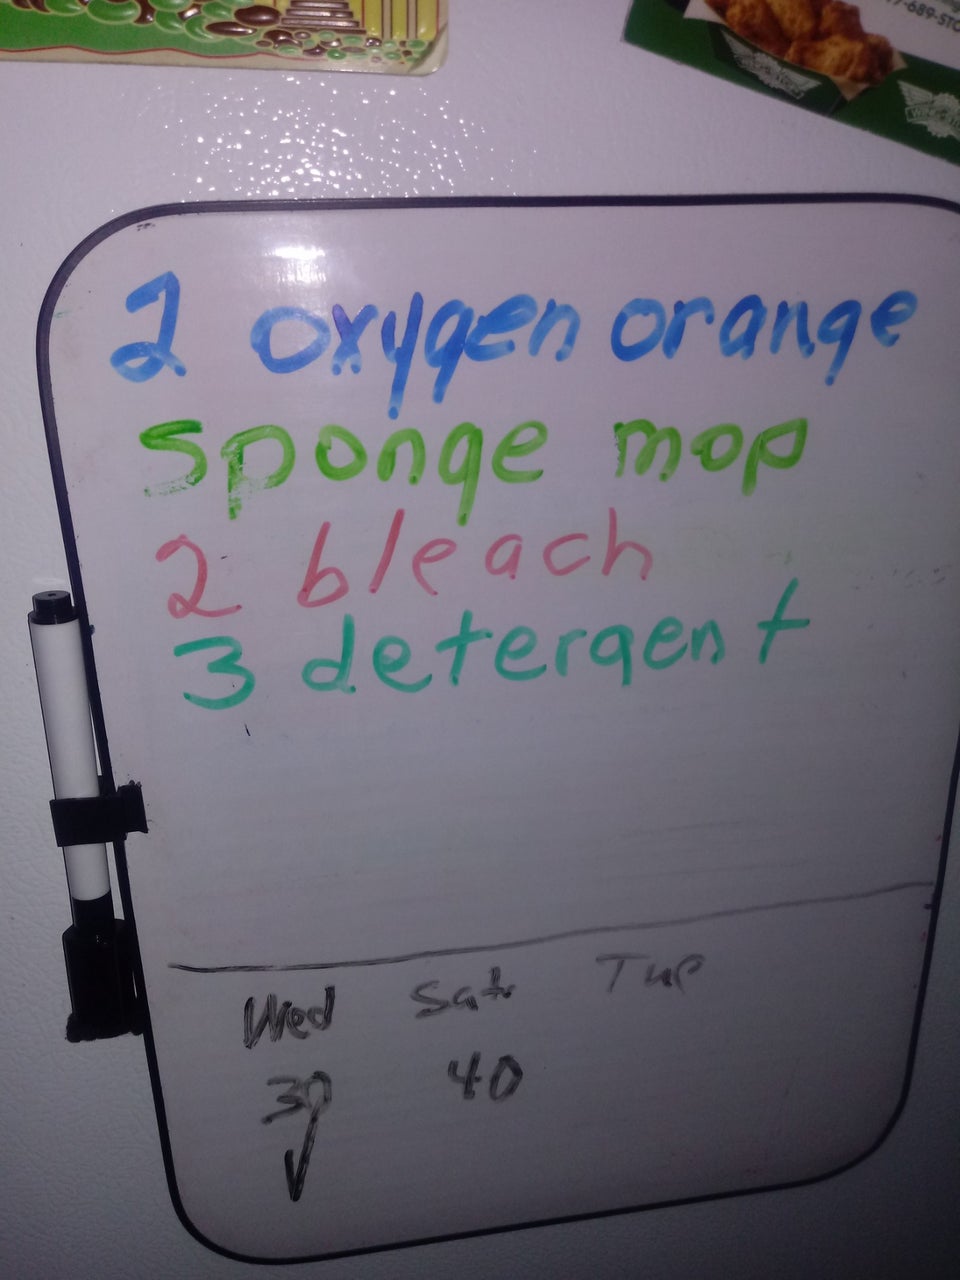 7-689-STO
2 oxygen orange
sponge mop
2 bleach
3 detergent
Wed Sat Tue
39 40